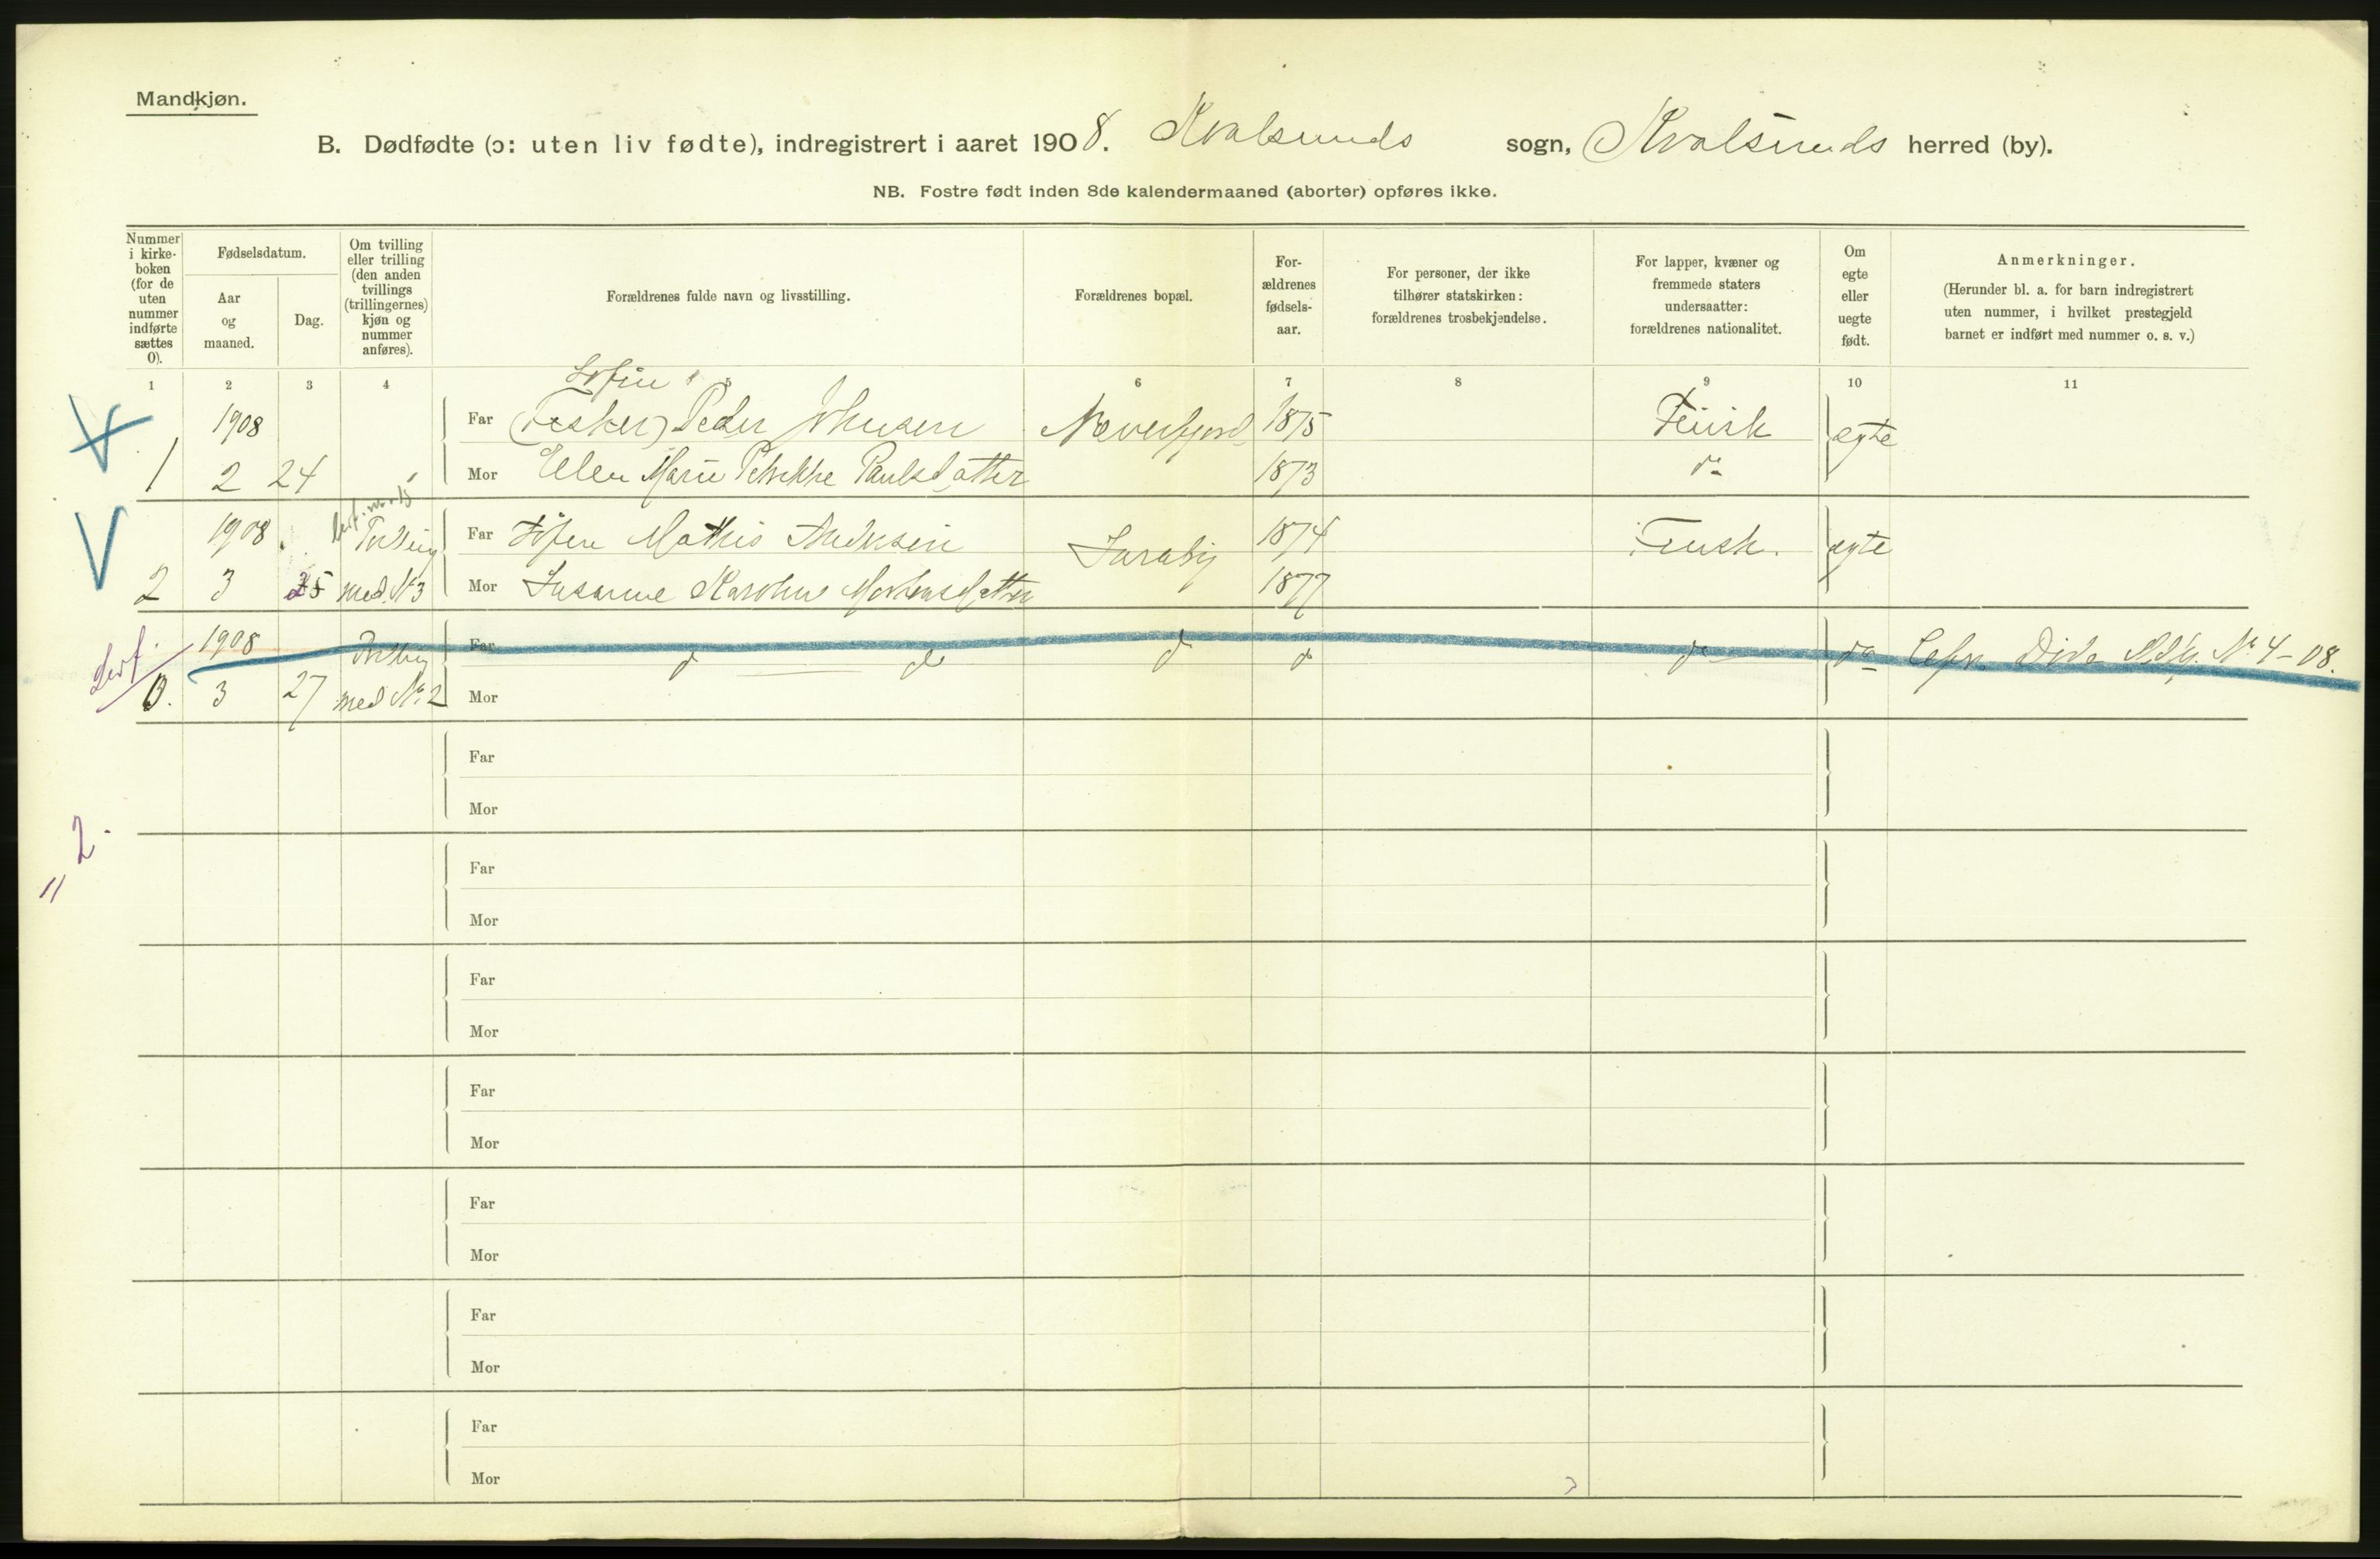 Mandkjøn.
B. Dødfødte (ɔ: uten liv fødte), indregistrert i aaret 1908. Kvalsunds sogn, Kvalsunds herred (by).
NB. Fostre født inden 8de kalendermaaned (aborter) opføres ikke.
Nummer i kirke-boken (for de uten nummer indførte sættes 0).
Fødselsdatum.
Aar og maaned.
Dag.
Om tvilling eller trilling (den anden tvillings (trillingernes) kjøn og nummer anføres).
Forældrenes fulde navn og livsstilling.
Forældrenes bopæl.
For-ældrenes fødsels-aar.
For personer, der ikke tilhører statskirken: forældrenes trosbekjendelse.
For lapper, kvæner og fremmede staters undersaatter: forældrenes nationalitet.
Om egte eller uegte født.
Anmerkninger.
(Herunder bl. a. for barn indregistrert uten nummer, i hvilket prestegjeld barnet er indført med nummer o. s. v.)
1 2 3 4 5 6 7 8 9 10 11
1908 Far (Fisker) Peder Johnsen 1875 egte
1 2 24 Mor Ellen Marie Petrikke Paulsdatter 1873 do
1908 Tvilling Far Mathis Andersen Saraby 1874 Finsk. egte
2 3 25 med No 3 Mor Susanne Karoline Mortensdatter 1877
1908 Tvilling Far do do do do do do No 4-08.
0. 3 27 med No. 2 Mor
Far
Mor
" 2.
Far
Mor
Far
Mor
Far
Mor
Far
Mor
Far
Mor
Far
Mor